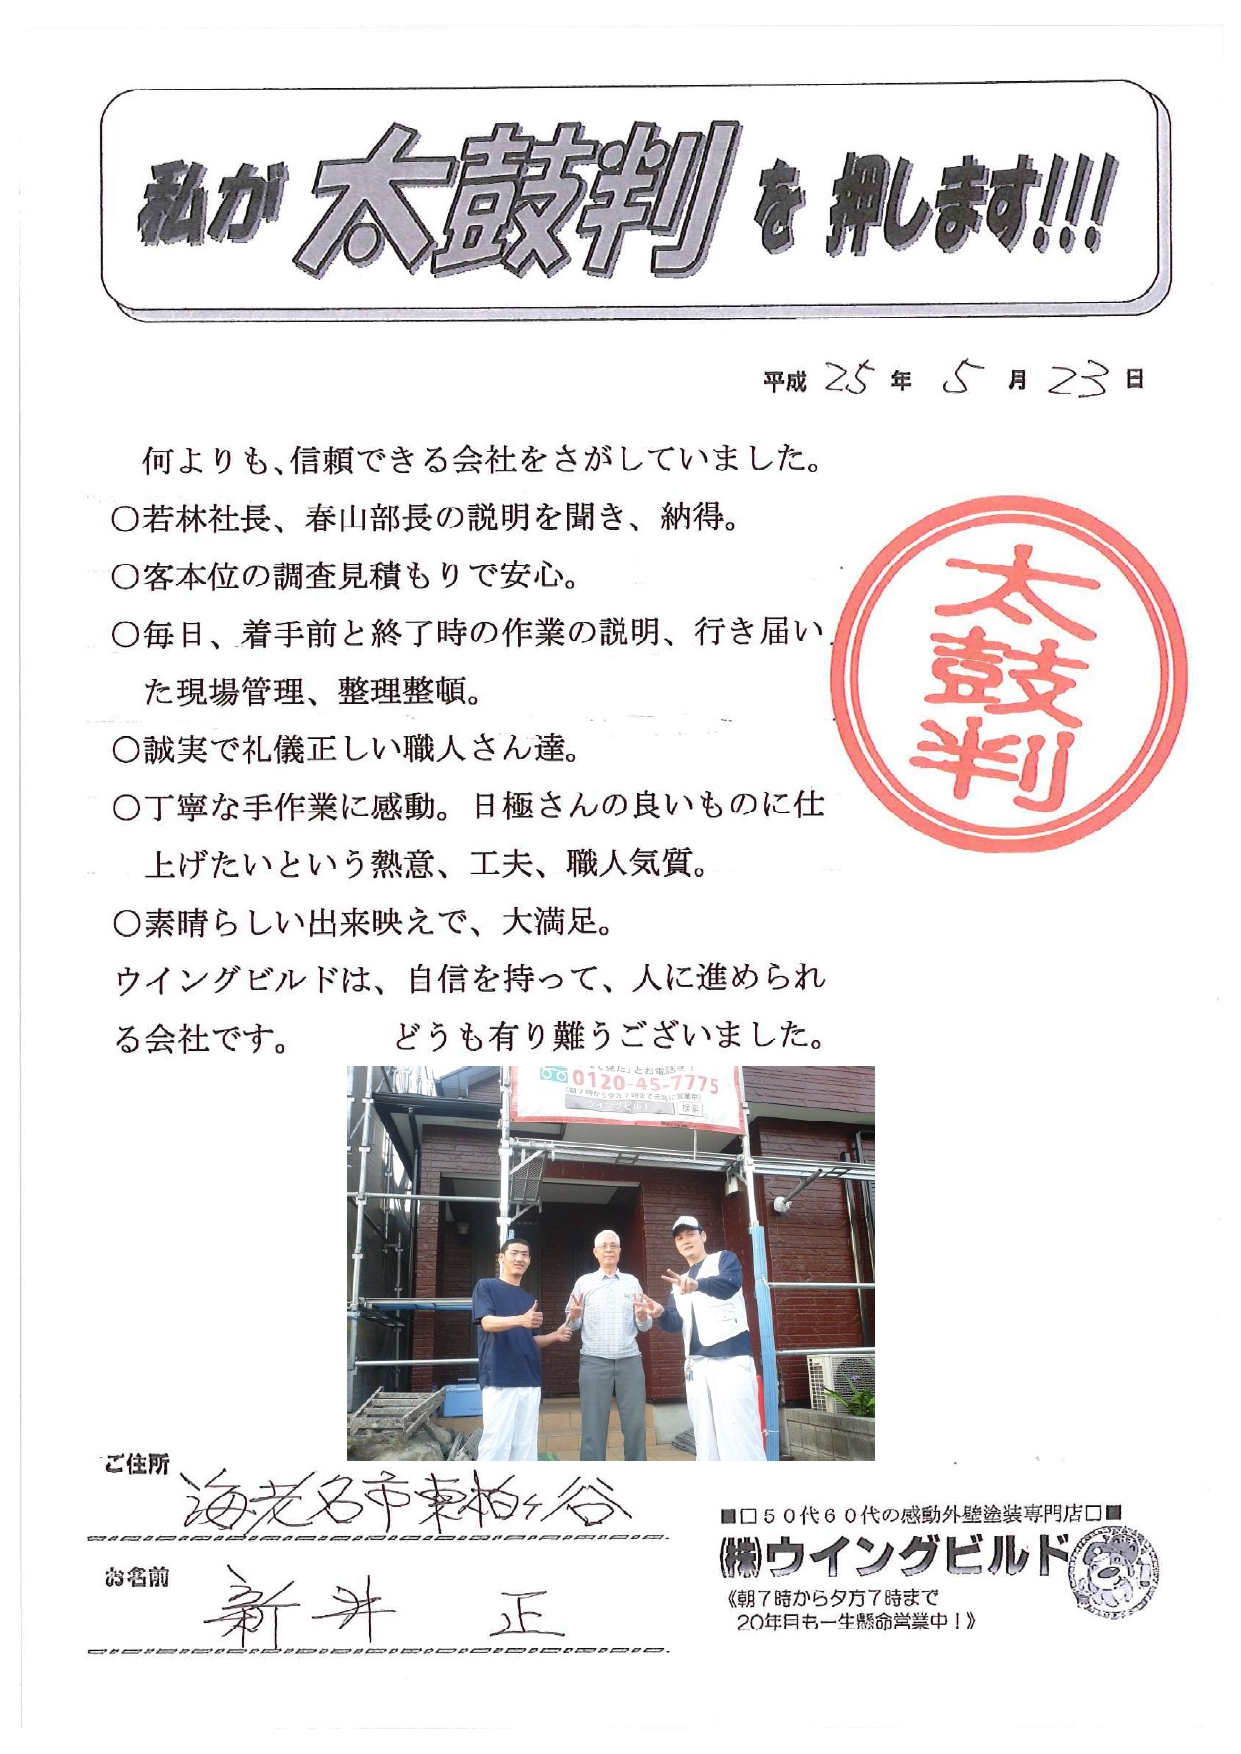 私が太鼓判を押します!!!
平成 25 年 5 月 23 日
何よりも、信頼できる会社をさがしていました。
○若林社長、春山部長の説明を聞き、納得。
○客本位の調査見積もりで安心。
○毎日、着手前と終了時の作業の説明、行き届い
た現場管理、整理整頓。
○誠実で礼儀正しい職人さん達。
○丁寧な手作業に感動。日極さんの良いものに仕
上げたいという熱意、工夫、職人気質。
○素晴らしい出来映えで、大満足。
ウイングビルドは、自信を持って、人に進められ
る会社です。 どうも有り難うございました。
太鼓判
0120-45-7775
ウイングビルド 検索
ご住所 海老名市東柏ヶ谷
お名前 新井 正
■□50代60代の感動外壁塗装専門店□■
㈱ウイングビルド
《朝7時から夕方7時まで
20年目も一生懸命営業中！》